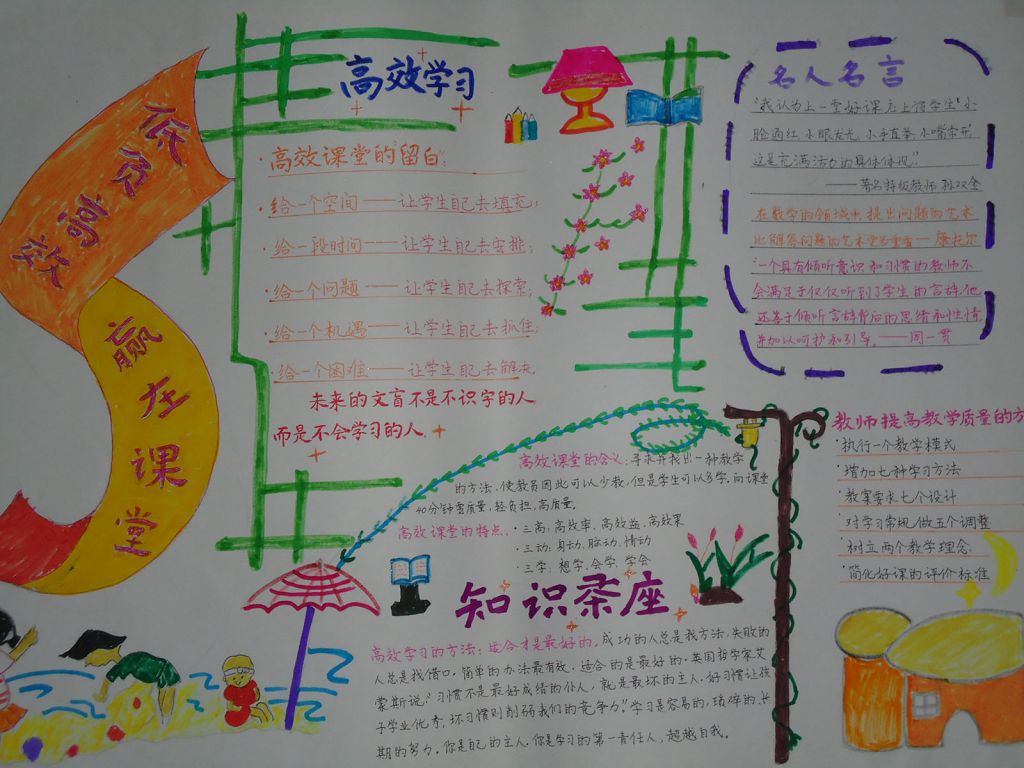 低负高效
赢在课堂
高效学习
·高效课堂的留白:
·给一个空间——让学生自己去填充;
·给一段时间——让学生自己去安排;
·给一个问题——让学生自己去探索;
·给一个机遇——让学生自己去抓住;
·给一个困难——让学生自己去解决。
未来的文盲不是不识字的人
而是不会学习的人。
名人名言
"我认为上一堂好课应上得学生'小
脸通红,小眼发光,小手直举,小嘴常开'
这是充满活力的具体体现."
——著名特级教师 孙双金
在数学的领域中,提出问题的艺术
比解答问题的艺术更为重要——康托尔
"一个具有倾听意识和习惯的教师不
会满足于仅仅听到了学生的言辞,他
还善于倾听言辞背后的思绪和性情,
并加以呵护和引导。——周一贯
高效课堂的含义:寻求并找出一种教学
的方法,使教员因此可以少教,但是学生可以多学.向课堂
40分钟要质量,轻负担,高质量.
高效课堂的特点:·三高:高效率,高效益,高效果
·三动:身动,脑动,情动
·三学:想学,会学,学会
知识茶座
高效学习的方法:适合才是最好的,成功的人总是找方法,失败的
人总是找借口.简单的办法最有效.适合的是最好的.英国哲学家艾
蒙斯说:"习惯不是最好成绩的仆人,就是最坏的主人.好习惯让孩
子学业优秀,坏习惯则削弱我们的竞争力."学习是容易的,琐碎的,长
期的努力.你是自己的主人.你是学习的第一责任人,超越自我。
教师提高教学质量的方
·执行一个教学模式
·增加七种学习方法
·教案要求七个设计
·对学习常规做五个调整
·树立两个教学理念
·简化好课的评价标准